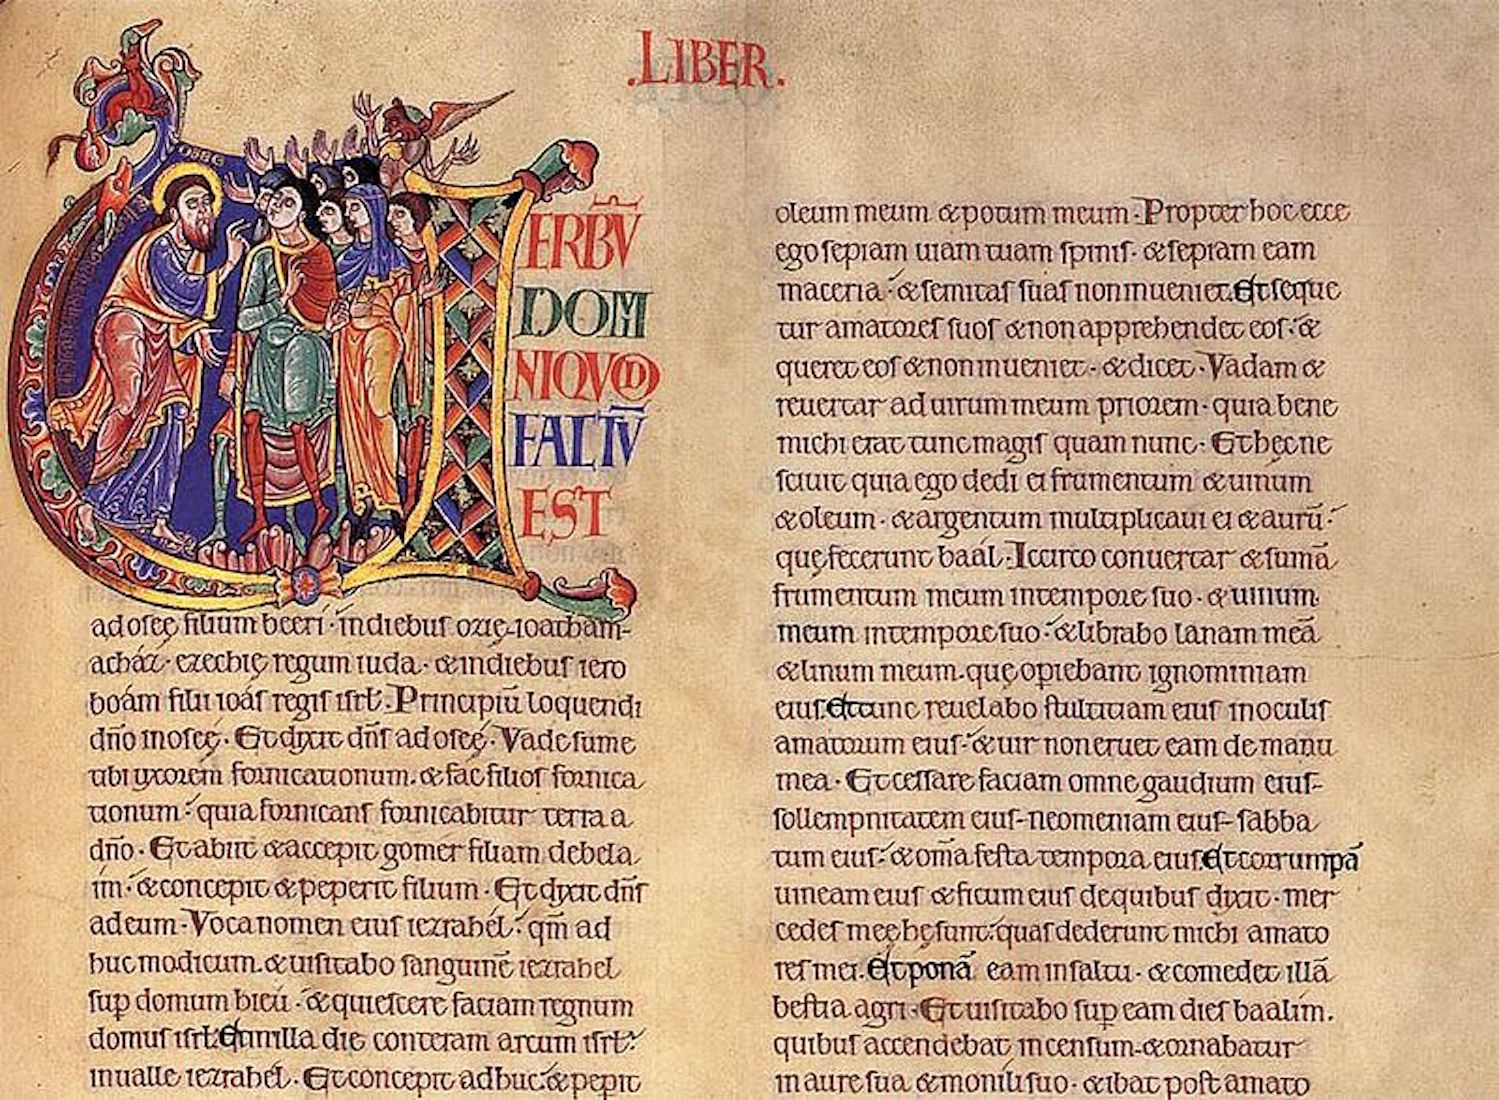 .LIBER.
ERBŪ
DOMI
NI QVOD
FACTŪ
EST
ad oseę filium beeri · in diebus ozię · ioatham ·
acház · ezechię regum iuda · & in diebus iero
boám filii ioás regis isrł. Principiū loquendi
dño in oseę · Et dixit dñs ad oseę · Vade sume
tibi uxorem fornicationum · & fac filios fornica
tionum · quia fornicans fornicabitur terra a
dño · Et abiit & accepit gomer filiam debela
im · & concepit & peperit filium · Et dixit dñs
ad eum · Voca nomen eius iezrahél · qm̄ ad
huc modicum · & uisitabo sanguinē iezrahel
sup domum hieu · & quiescere faciam regnum
domus isrł. Et in illa die conteram arcum isrł ·
in ualle iezrahél · Et concepit adhuc · & pepit
oleum meum & potum meum · Propter hoc ecce
ego sepiam uiam tuam spinis · & sepiam eam
maceria · & semitas suas non inueniet. Et seque
tur amatores suos & non apprehendet eos · &
queret eos & non inueniet · & dicet · Vadam &
reuertar ad uirum meum priorem · quia bene
michi erat tunc magis quam nunc · Et hęc ne
sciuit quia ego dedi ei frumentum & uinum
& oleum · & argentum multiplicaui ei & aurū ·
quę fecerunt baál · Iccirco conuertar & sumā
frumentum meum in tempore suo · & uinum
meum in tempore suo · & librabo lanam meā
& linum meum · quę opiebant ignominiam
eius. Et tunc reuelabo stultitiam eius in oculis
amatorum eius · & uir non eruet eam de manu
mea · Et cessare faciam omne gaudium eius ·
sollempnitatem eius · neomeniam eius · sabba
tum eius · & om̄a festa tempora eius. Et corrumpā
uineam eius & ficum eius de quibus dixit · mer
cedes meę hę sunt · quas dederunt michi amato
res mei. Et ponā eam in saltu · & comedet illā
bestia agri · Et uisitabo sup eam dies baalim ·
quibus accendebat incensum · & ornabatur
in aure sua & monili suo · & ibat post amato